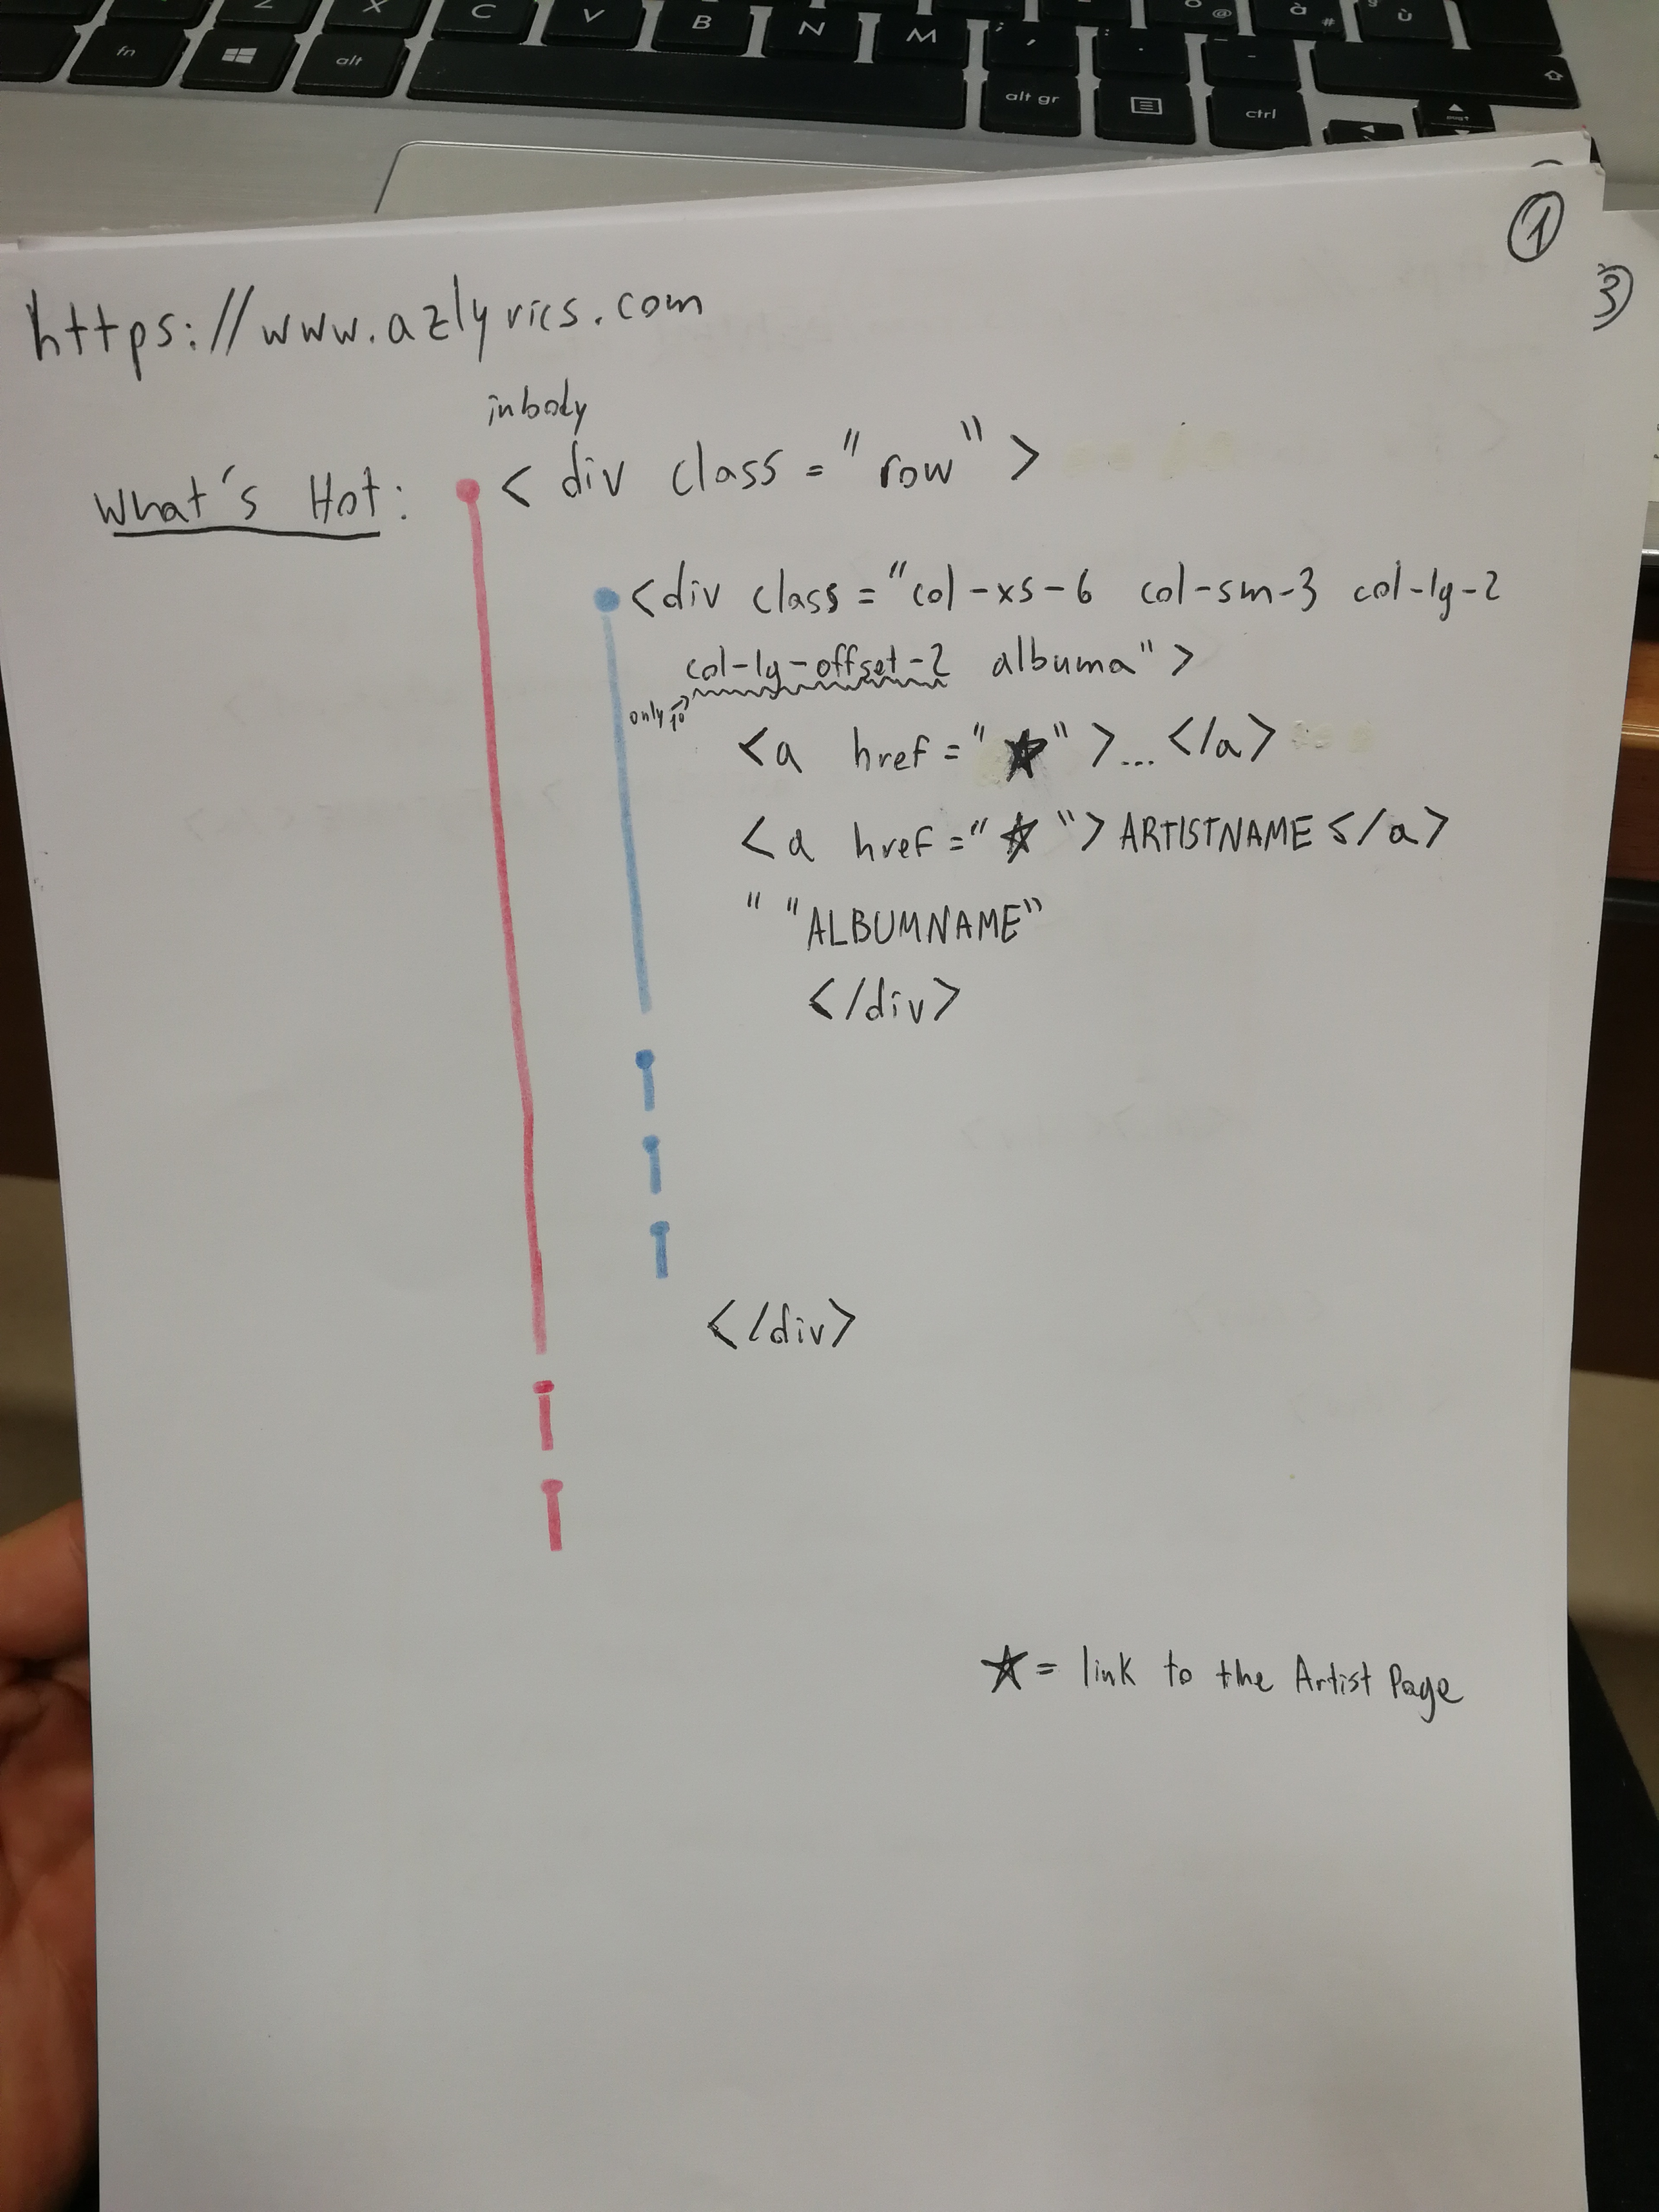 X C V B N M ; , : . - _ @ à # ù
fn alt alt gr ctrl
1
3
https://www.azlyrics.com
inbody
What's Hot: < div class = "row" >
<div class = "col-xs-6 col-sm-3 col-lg-2
col-lg-offset-2 albuma" >
only
<a href = "★" >... </a>
<a href = "☆" > ARTISTNAME </a>
" "ALBUMNAME"
</div>
</div>
☆ = link to the Artist Page